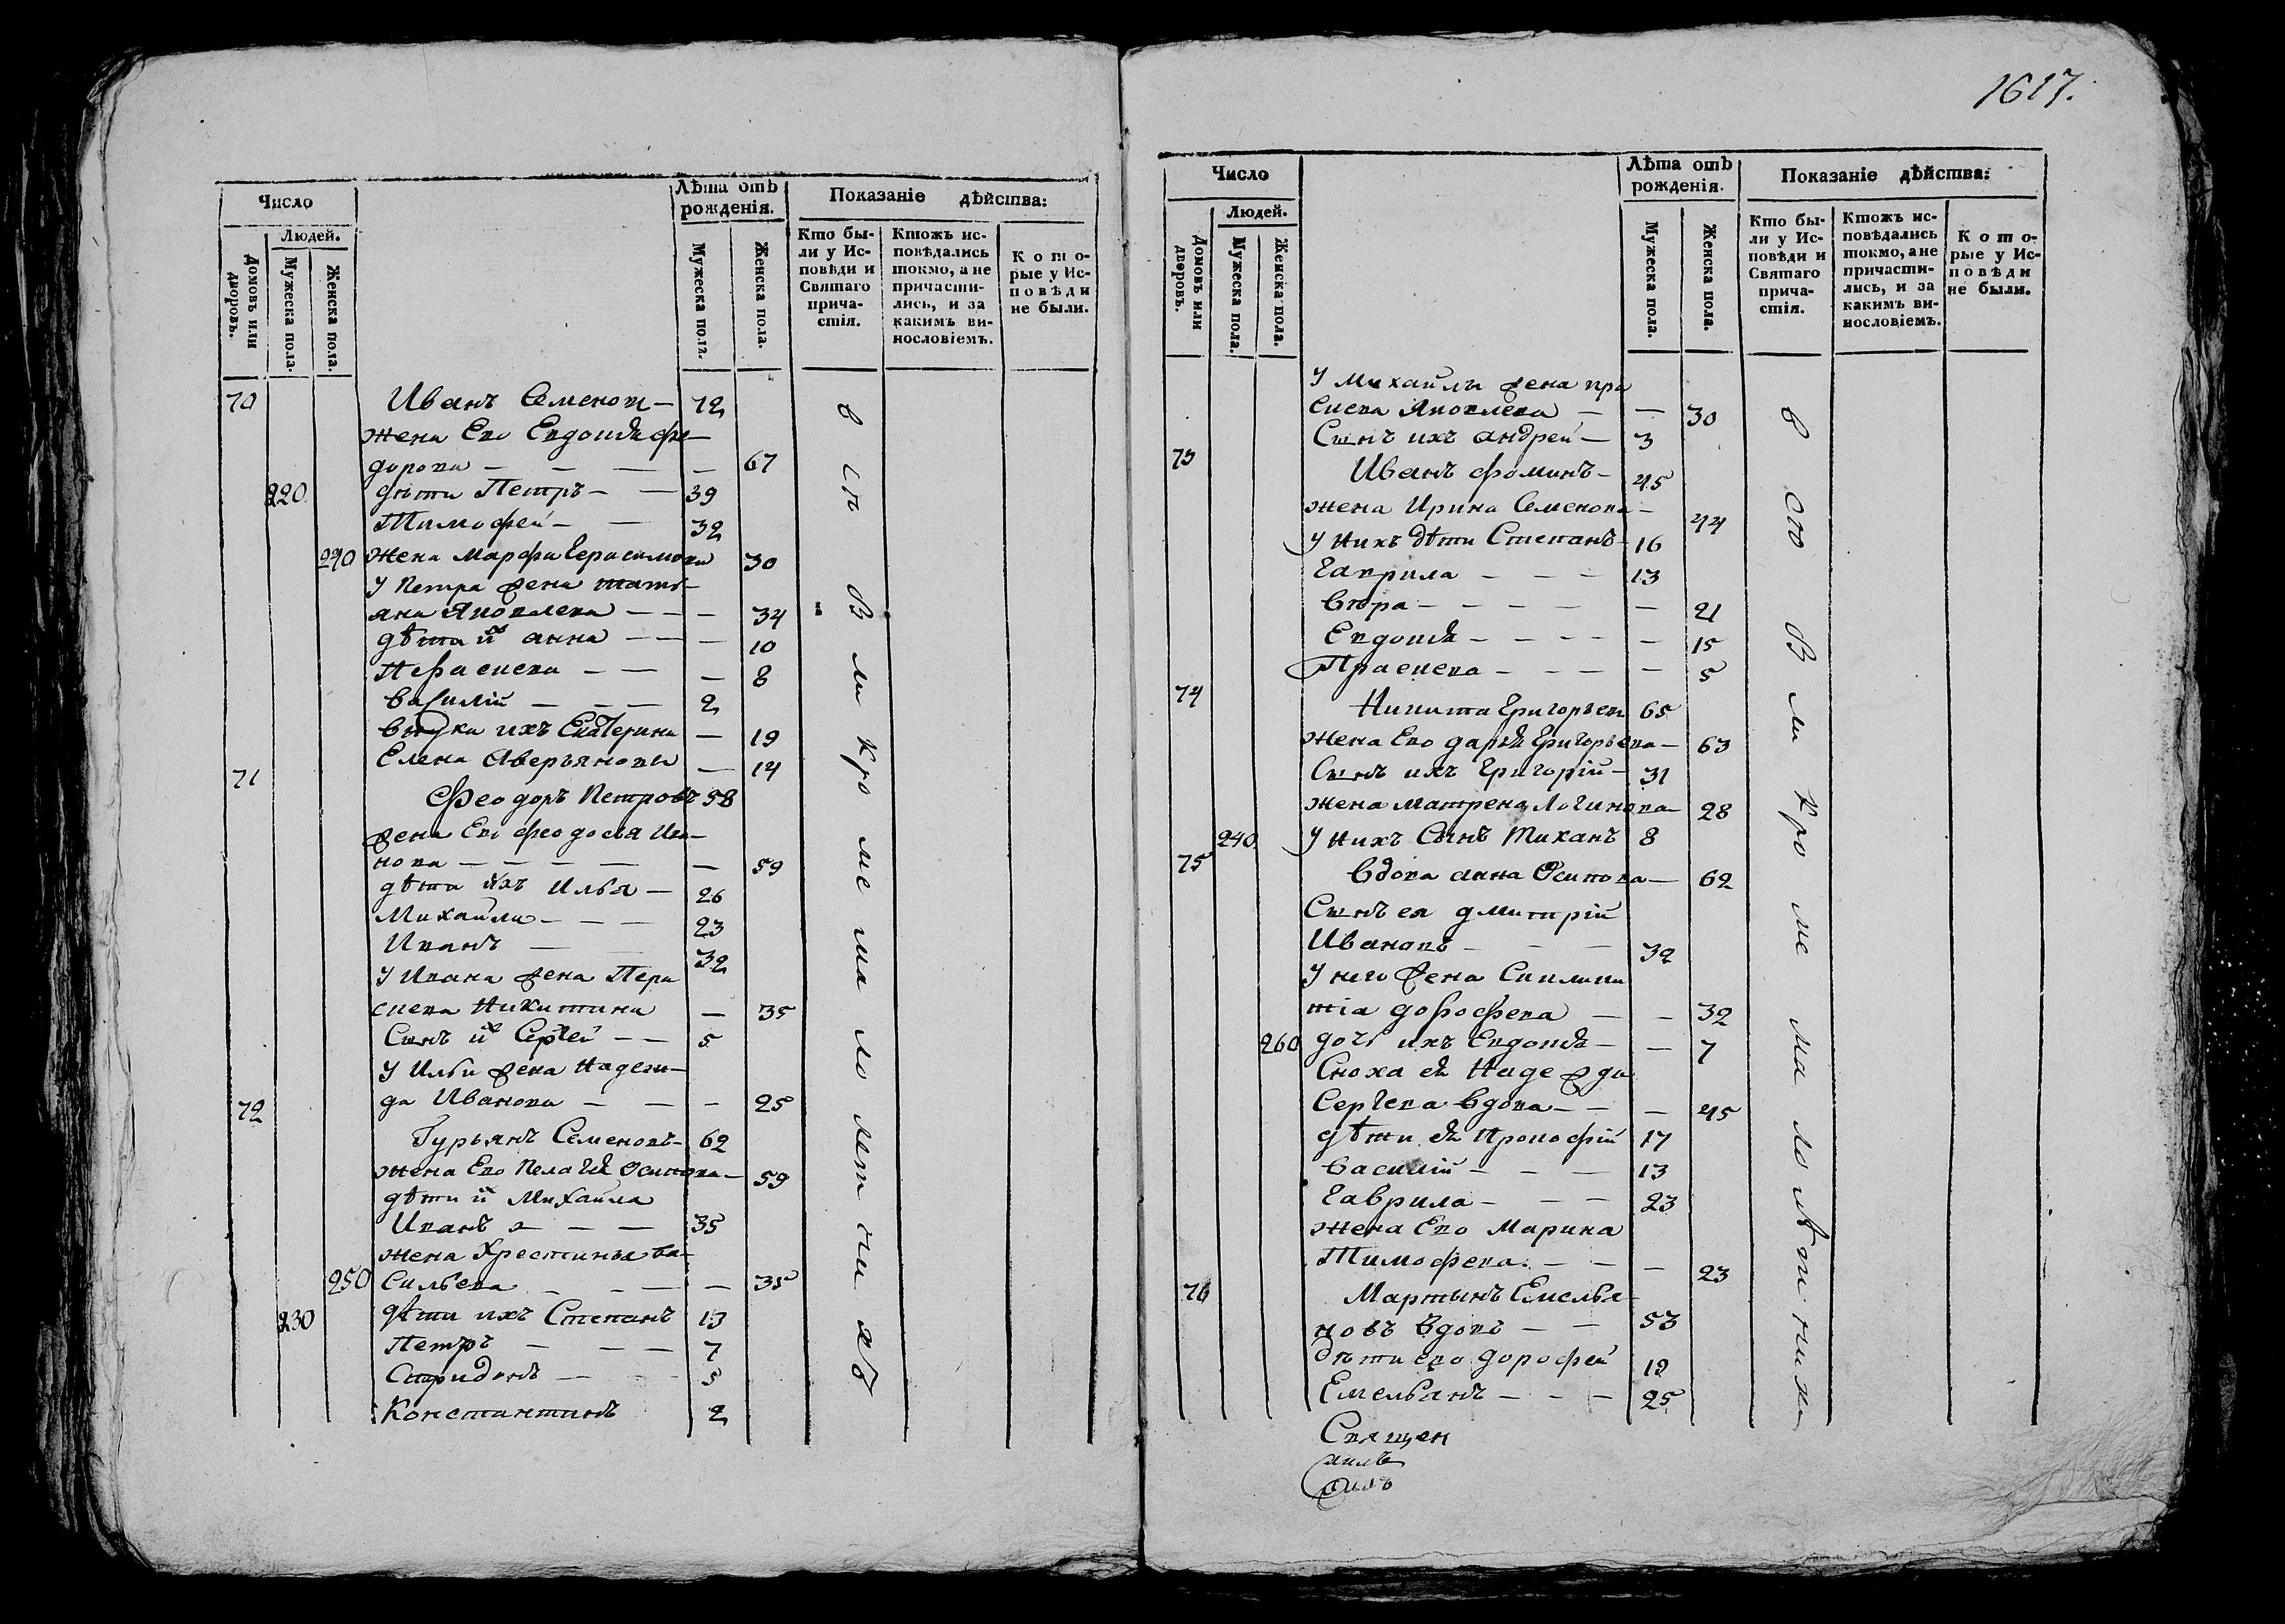 1617.
Число
Лѣта отъ рожденія.
Показаніе дѣйства:
Людей.
Домовъ или дворовъ.
Мужеска пола.
Женска пола.
Мужеска пола.
Женска пола.
Кто бы-
ли у Ис-
повѣди и
Святаго
прича-
стія.
Ктожъ ис-
повѣдались
токмо, а не
причасти-
лись, и за
какимъ ви-
нословіемъ.
Кото-
рые у Ис-
повѣди
не были.
70 Иванъ Семеновъ — 72
жена Его Евдокія Фе—
дорова — — — — 67
220 дѣти Петръ — — 39
Тимофей — — 32
240 Жена Марфа Герасимова 30
У Петра жена Тать-
яна Яковлева — — — 34
дѣти их Анна — — — 10
Параскева — — — 8
Василій — — — 2
Внуки ихъ Екатерина — 19
Елена Аверьяновы — 14
71 Феодоръ Петровъ 58
жена Его Феодосія Ива—
нова — — — — — 59
дѣти ихъ Илья — 26
Михайла — — — 23
Иванъ — 32
У Ивана жена Пара
скева Никитина — 35
Сынъ их Сергей — — 5
У Ильи жена Надеж—
да Иванова — — — 25
72 Гурьянъ Семеновъ — 62
жена Его Пелагія Осипова — 59
дѣти их Михайла
Иванъ — — — 35
жена Хрестинья Ва-
250 сильева — — — — 35
230 дѣти ихъ Степанъ 13
Петръ — — — 7
Спиридонъ — — 5
Константинъ 2
всѣ были кромѣ малолетнихъ
Число
Лѣта отъ рожденія.
Показаніе дѣйства:
Людей.
Домовъ или дворовъ.
Мужеска пола.
Женска пола.
Мужеска пола.
Женска пола.
Кто бы-
ли у Ис-
повѣди и
Святаго
прича-
стія.
Ктожъ ис-
повѣдались
токмо, а не
причасти-
лись, и за
какимъ ви-
нословіемъ.
Кото-
рые у Ис-
повѣди
не были.
У Михайлы жена Пра
скева Яковлева — — 30
Сынъ ихъ Андрей — 3
73 Иванъ Фоминъ — 45
жена Ирина Семенова — 44
У нихъ дѣти Степанъ — 16
Гаврила — — — 13
Вѣра — — — — — 21
Евдокія — — — — — 15
Праскева — — — — 5
74 Никита Григорьевъ 65
жена Его Дарья Григорьева — 63
Сынъ ихъ Григорій — 31
жена Матрена Логинова — 28
240 У нихъ Сынъ Тиханъ 8
75 Вдова Анна Осипова — 62
Сынъ ея Дмитрій
Ивановъ — — — 32
У него жена
Дорофеева — — 32
260 дочь ихъ Евдокія — — 7
Сноха ея Надежда
Сергеева Вдова — — — 45
дѣти ея Прокофій 17
Василій — — — 13
Гаврила — — — 23
жена Его Марина
Тимофеева — — — 23
76 Мартынъ Емелья-
новъ Вдовъ — — 53
дѣти его Дорофей 19
Емельянъ — — — 25
Священ